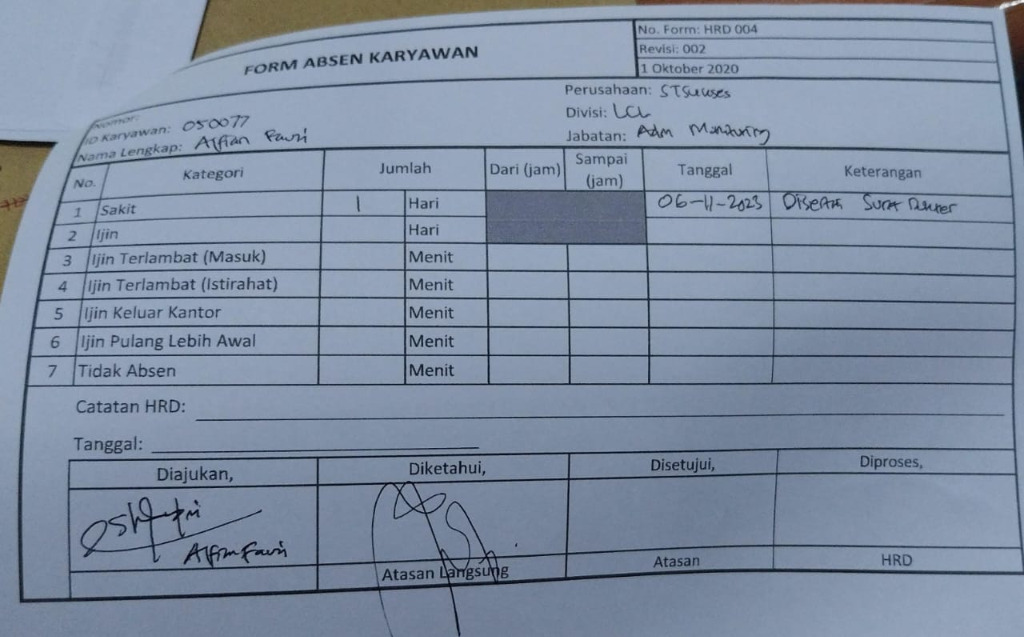 FORM ABSEN KARYAWAN
No. Form: HRD 004
Revisi: 002
1 Oktober 2020
Nomor:
ID Karyawan: 050077
Nama Lengkap: Alfian Fauzi
Perusahaan: STSukses
Divisi: LCL
Jabatan: Adm Monitoring
No. Kategori Jumlah Dari (jam) Sampai (jam) Tanggal Keterangan
1 Sakit 1 Hari 06-11-2023 Disertai Surat Dokter
2 Ijin Hari
3 Ijin Terlambat (Masuk) Menit
4 Ijin Terlambat (Istirahat) Menit
5 Ijin Keluar Kantor Menit
6 Ijin Pulang Lebih Awal Menit
7 Tidak Absen Menit
Catatan HRD:
Tanggal:
Diajukan, Diketahui, Disetujui, Diproses,
Alfian Fauzi
Atasan Langsung Atasan HRD